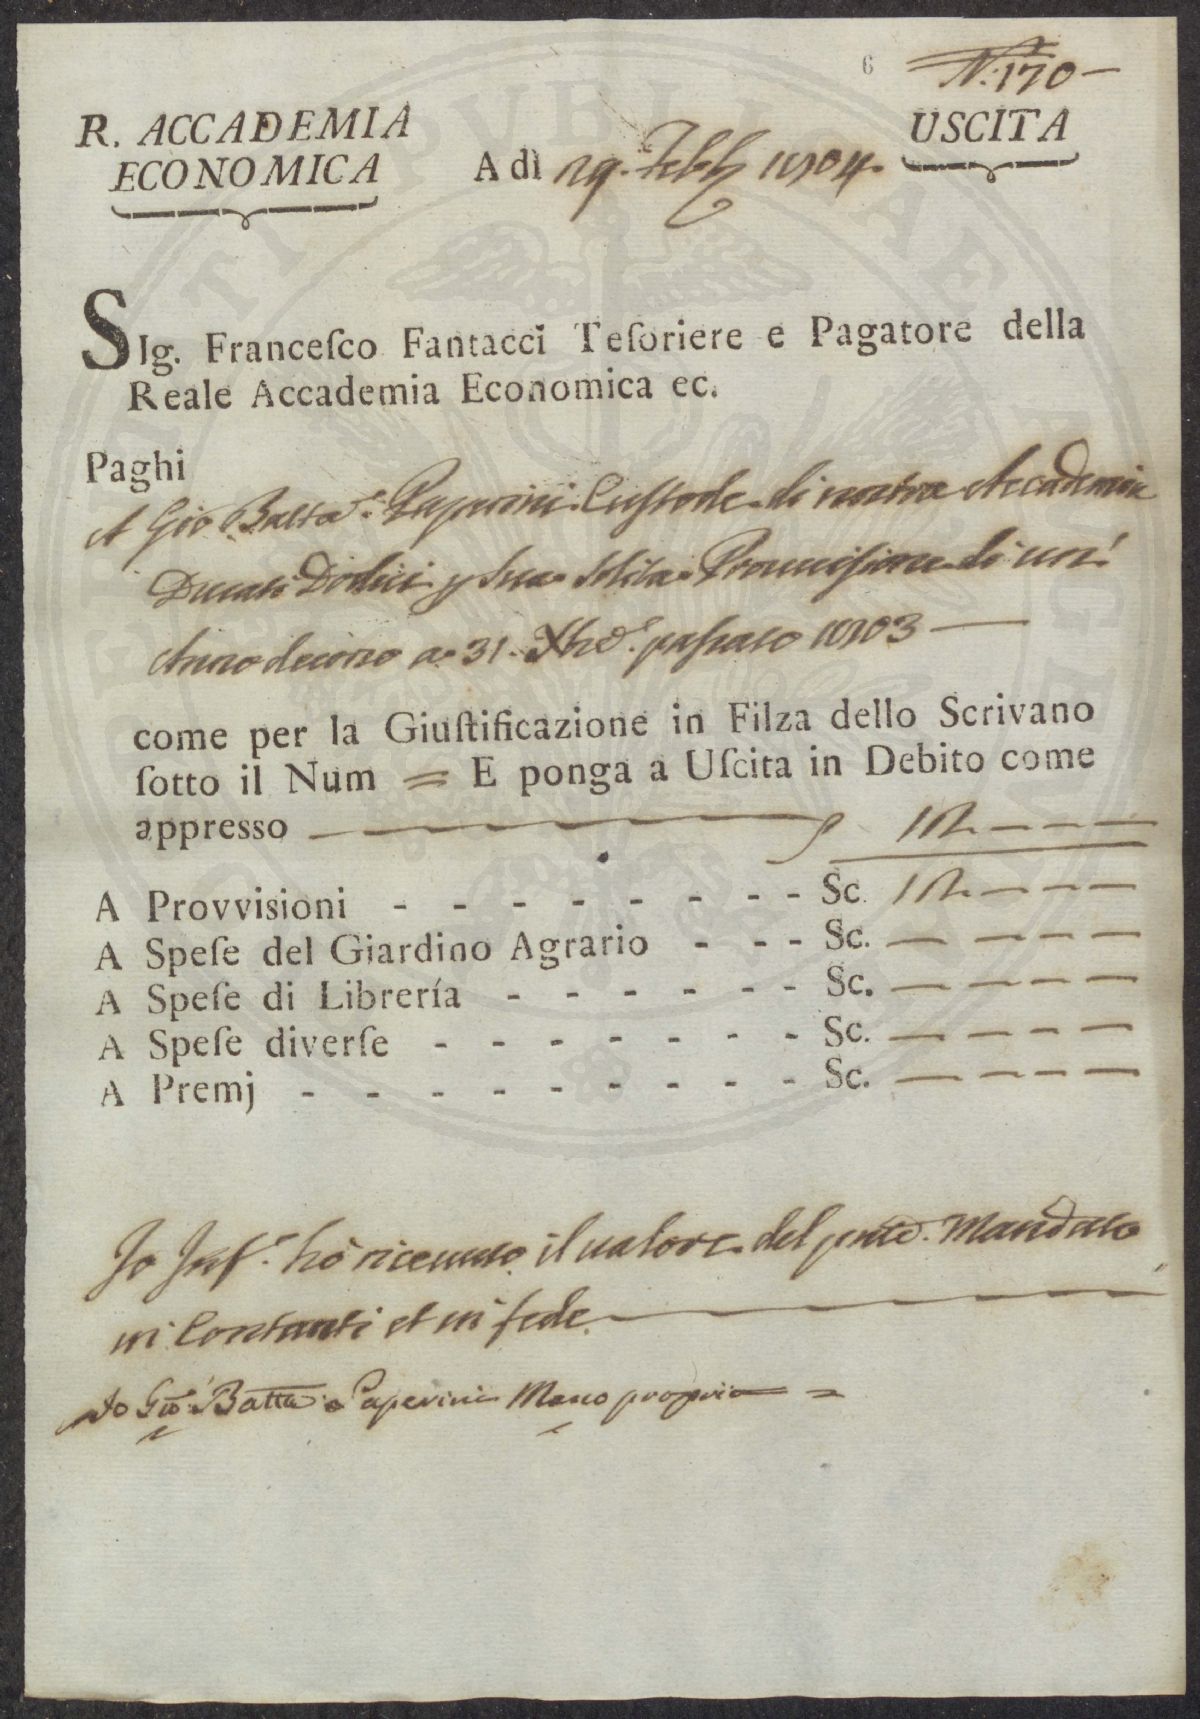 6
N.° 170
R. ACCADEMIA
ECONOMICA
USCITA
A dì 29. Febb. 1804.
SIg. Franceſco Fantacci Teſoriere e Pagatore della
Reale Accademia Economica ec.
Paghi
A Gio Batta Paperini Custode di nostra Accademia
Ducati Dodici p sua solita Provvisione di un'
Anno decorso a 31. Xbre. passato 1803
come per la Giuſtificazione in Filza dello Scrivano
ſotto il Num = E ponga a Uſcita in Debito come
appresso 12
A Provvisioni - - - - - - - - Sc. 12
A Speſe del Giardino Agrario - - - Sc.
A Speſe di Librería - - - - - - Sc.
A Speſe diverſe - - - - - - - Sc.
A Premj - - - - - - - - - Sc.
Io Inf. hò ricevuto il valore del pnte. Mandato
in Contanti et in fede
Io Gio Batta Paperini Mano propria =